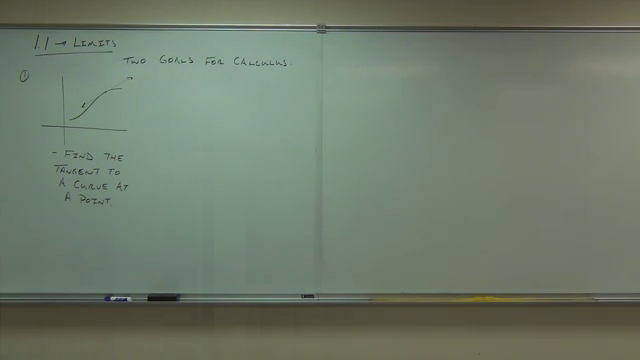 1.1 → LIMITS
TWO GOALS FOR CALCULUS.
①
- FIND THE
TANGENT TO
A CURVE AT
A POINT.